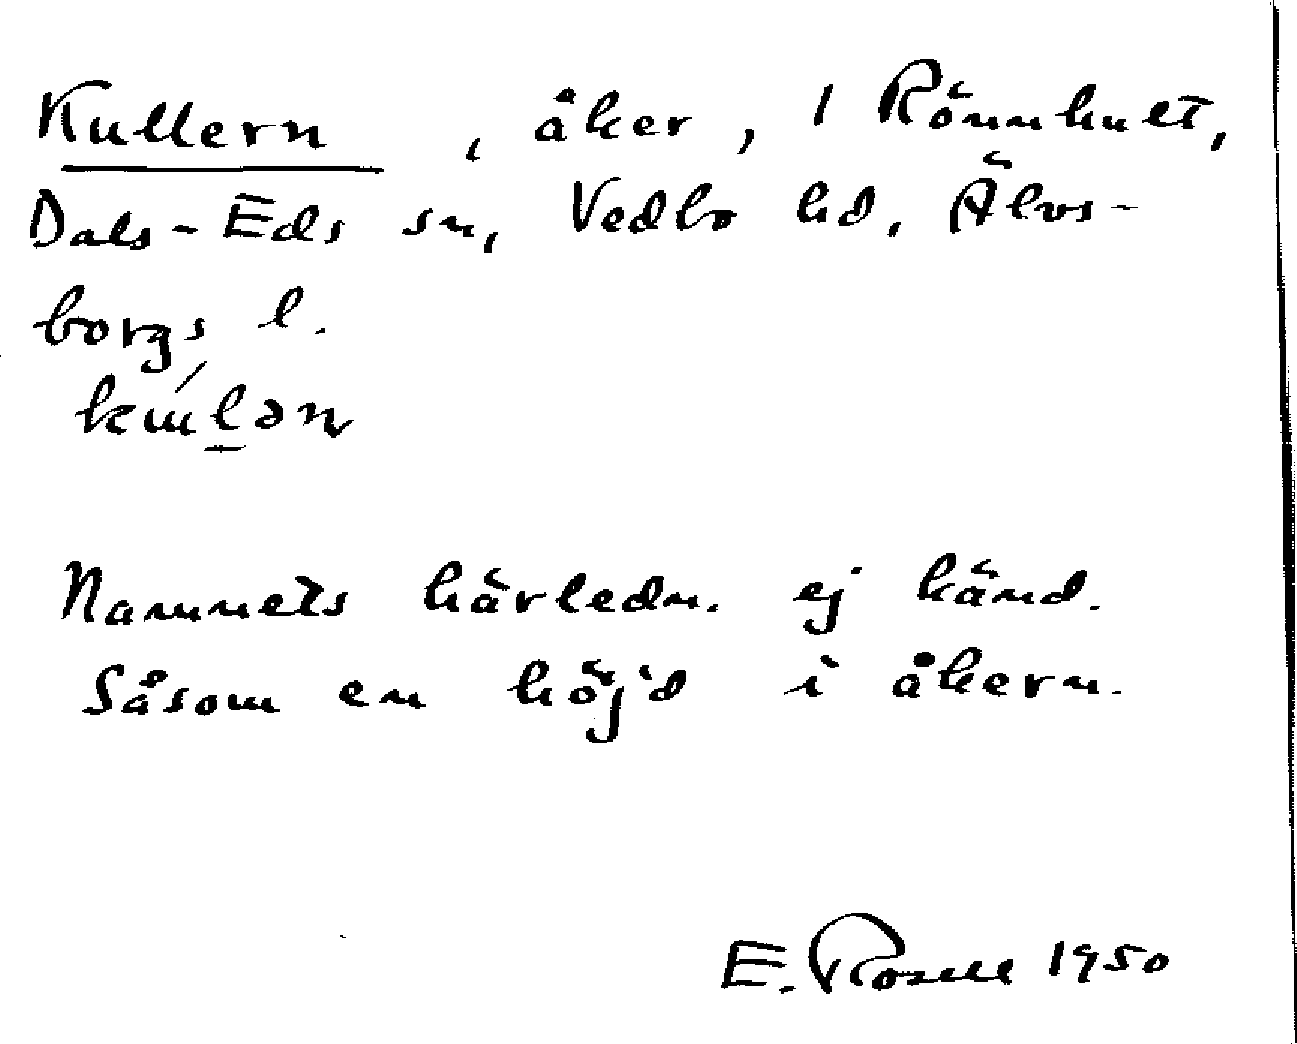 Kullern, åker, 1 Rönnhult,
Dals-Eds sn, Vedbo hd, Älvs-
borgs l.
Namnets härledn. ej känd.
Såsom en höjd i åkern.
E. Rosell 1950